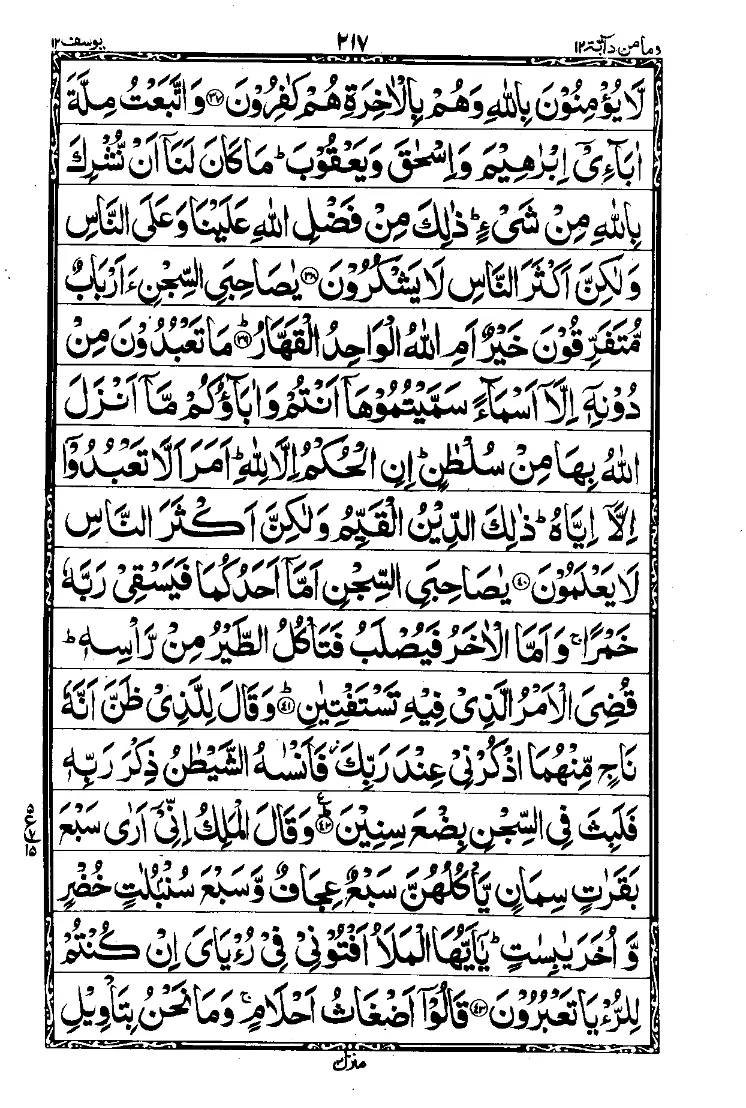 ومامن دآبة ١٢ ٢١٧ يوسف ١٢
لَا يُؤْمِنُوْنَ بِاللّٰهِ وَهُمْ بِالْاٰخِرَةِ هُمْ كٰفِرُوْنَ ۝٣٧ وَاتَّبَعْتُ مِلَّةَ
اٰبَآءِىْٓ اِبْرٰهِيْمَ وَاِسْحٰقَ وَيَعْقُوْبَ ؕ مَا كَانَ لَنَآ اَنْ نُّشْرِكَ
بِاللّٰهِ مِنْ شَىْءٍ ؕ ذٰلِكَ مِنْ فَضْلِ اللّٰهِ عَلَيْنَا وَعَلَى النَّاسِ
وَلٰكِنَّ اَكْثَرَ النَّاسِ لَا يَشْكُرُوْنَ ۝٣٨ يٰصَاحِبَىِ السِّجْنِ ءَاَرْبَابٌ
مُّتَفَرِّقُوْنَ خَيْرٌ اَمِ اللّٰهُ الْوَاحِدُ الْقَهَّارُ ؕ۝٣٩ مَا تَعْبُدُوْنَ مِنْ
دُوْنِهٖٓ اِلَّآ اَسْمَآءً سَمَّيْتُمُوْهَآ اَنْتُمْ وَاٰبَآؤُكُمْ مَّآ اَنْزَلَ
اللّٰهُ بِهَا مِنْ سُلْطٰنٍ ؕ اِنِ الْحُكْمُ اِلَّا لِلّٰهِ ؕ اَمَرَ اَلَّا تَعْبُدُوْٓا
اِلَّآ اِيَّاهُ ؕ ذٰلِكَ الدِّيْنُ الْقَيِّمُ وَلٰكِنَّ اَكْثَرَ النَّاسِ
لَا يَعْلَمُوْنَ ۝٤٠ يٰصَاحِبَىِ السِّجْنِ اَمَّآ اَحَدُكُمَا فَيَسْقِىْ رَبَّهٗ
خَمْرًا ۚ وَاَمَّا الْاٰخَرُ فَيُصْلَبُ فَتَاْكُلُ الطَّيْرُ مِنْ رَّاْسِهٖ ؕ
قُضِىَ الْاَمْرُ الَّذِىْ فِيْهِ تَسْتَفْتِيٰنِ ؕ۝٤١ وَقَالَ لِلَّذِىْ ظَنَّ اَنَّهٗ
نَاجٍ مِّنْهُمَا اذْكُرْنِىْ عِنْدَ رَبِّكَ ۫ فَاَنْسٰىهُ الشَّيْطٰنُ ذِكْرَ رَبِّهٖ
فَلَبِثَ فِى السِّجْنِ بِضْعَ سِنِيْنَ ؕ۝٤٢ وَقَالَ الْمَلِكُ اِنِّىْٓ اَرٰى سَبْعَ
بَقَرٰتٍ سِمَانٍ يَّاْكُلُهُنَّ سَبْعٌ عِجَافٌ وَّسَبْعَ سُنْۢبُلٰتٍ خُضْرٍ
وَّاُخَرَ يٰبِسٰتٍ ؕ يٰٓاَيُّهَا الْمَلَاُ اَفْتُوْنِىْ فِىْ رُءْيَاىَ اِنْ كُنْتُمْ
لِلرُّءْيَا تَعْبُرُوْنَ ۝٤٣ قَالُوْٓا اَضْغَاثُ اَحْلَامٍ ۚ وَمَا نَحْنُ بِتَاْوِيْلِ
منزل٣